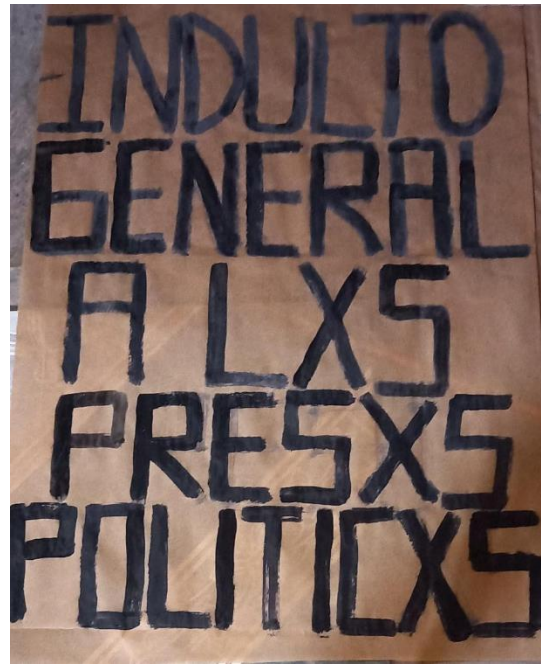 INDULTO
GENERAL
A LXS
PRESXS
POLITICXS